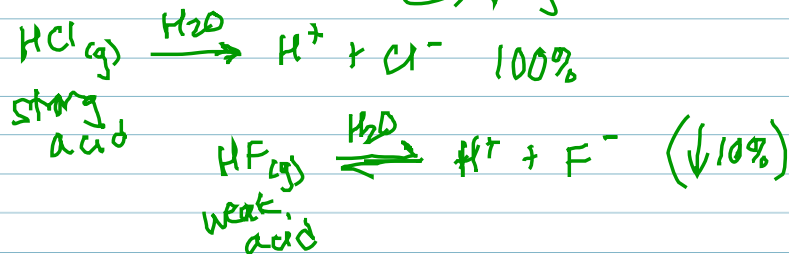 HCl(g) H2O → H⁺ + Cl⁻ 100%
strong
acid
HF(g) H2O ⇌ H⁺ + F⁻ (↓10%)
weak
acid